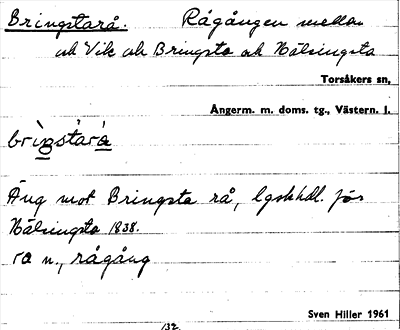 Bringstarå. Rågången mellan
och Vik och Bringsta och Hälsingsta
Torsåkers sn,
Ångerm. m. doms. tg., Västern. l.
brìŋstàrά
Äng mot Bringsta rå, lgskhdl. för
Hälsingsta 1838.
rå n., rågång
Sven Hiller 1961
132.